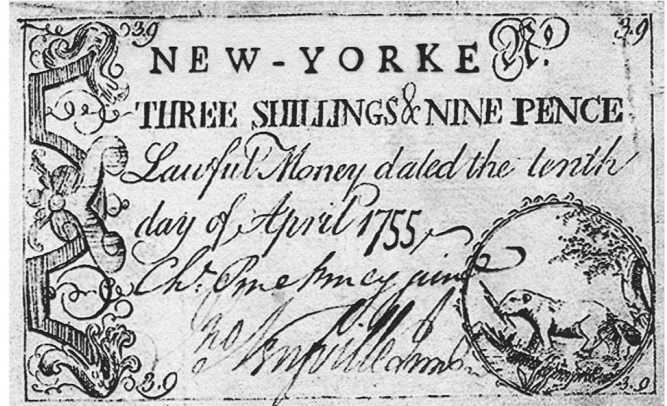 39 39
NEW-YORKE No.
THREE SHILLINGS & NINE PENCE
Lawful Money dated the tenth
day of April 1755
Chr.
39 39